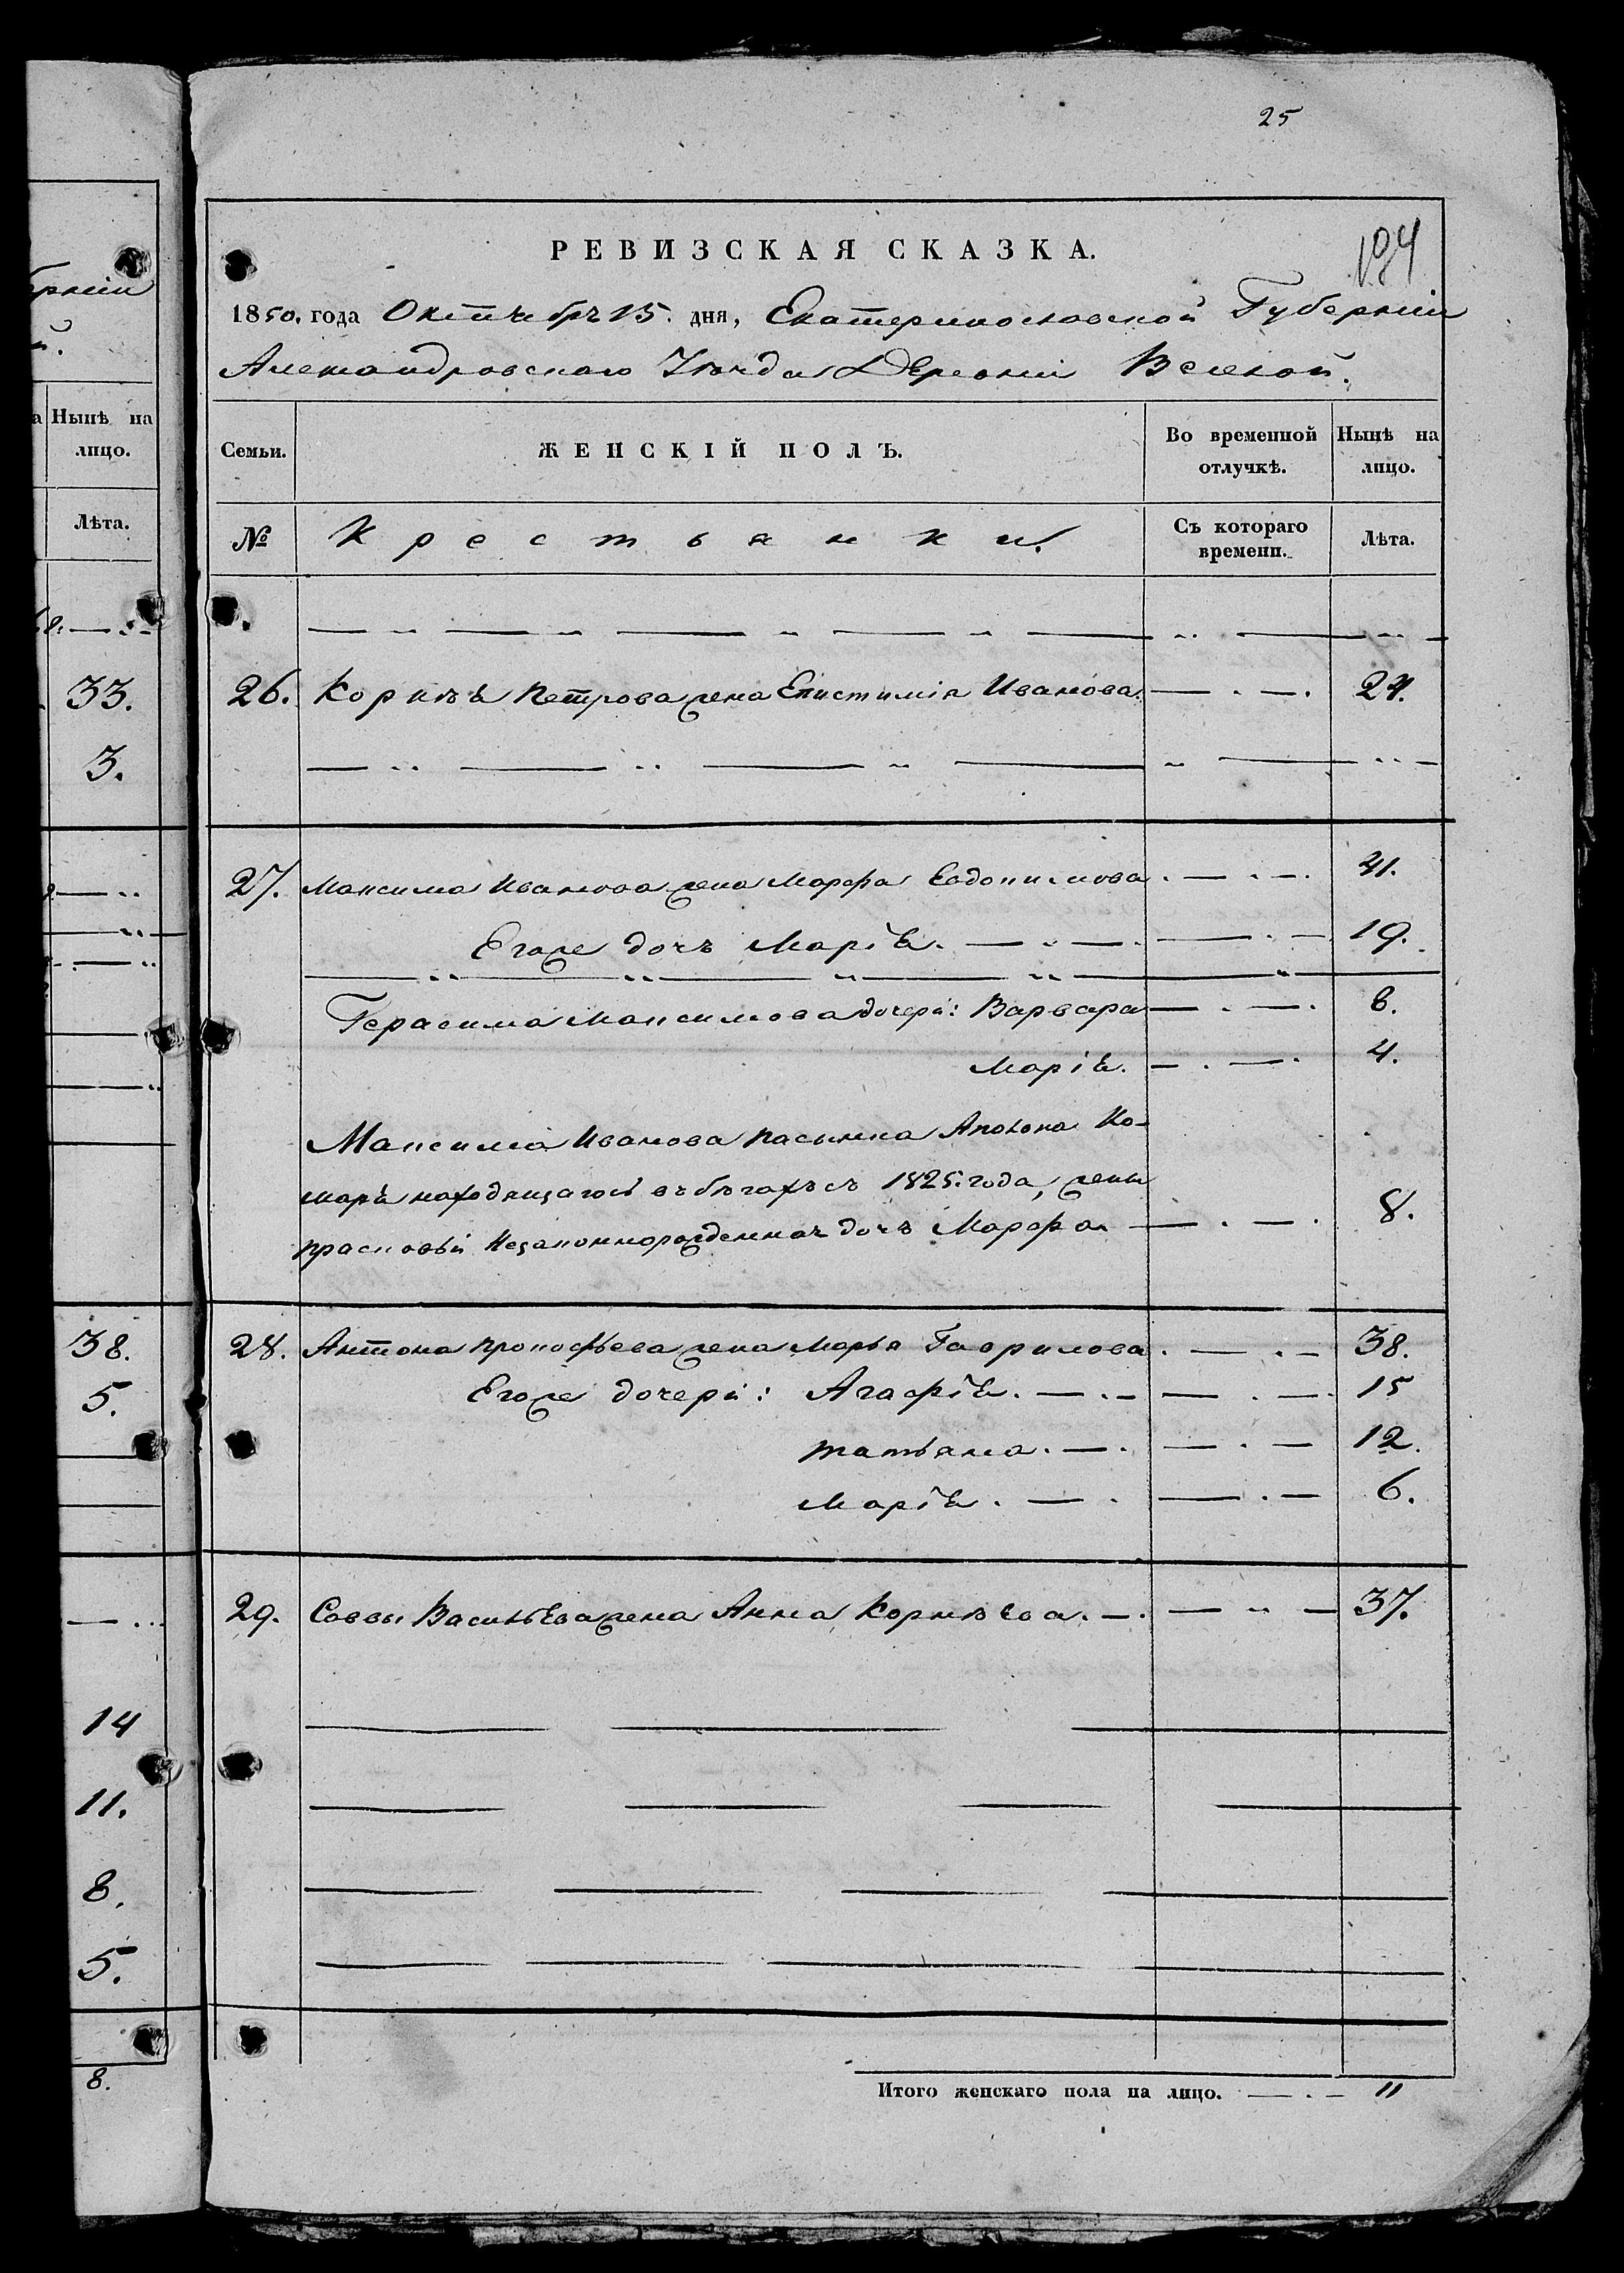 25
РЕВИЗСКАЯ СКАЗКА.
1850. года Октября 15. дня, Екатеринославской Губерніи
Александровскаго Уѣзда Деревни
Семьи.
ЖЕНСКІЙ ПОЛЪ.
Во временной отлучкѣ.
Нынѣ на лицо.
№
Крестьянки.
Съ котораго времени.
Лѣта.
26. Корнѣя Петрова жена Епистимія Иванова.
27. Максима Иванова жена Марфа Евдокимова. 41.
Егоже дочь Марія. 19.
Герасима Максимова дочери: Варвара 6.
Марія. 4.
Максима Иванова пасынка Ко-
маря находящагося въ бѣгахъ съ 1825. года, жены
прасковьи Незаконнорожденная дочь Марфа. 8.
28. Антона прокофьева жена Марья Гаврилова. 38.
Егоже дочери: Агафія. 15
татьяна. 12.
Марія. 6.
29. Саввы Васильева жена Анна Корнѣева. 37.
Итого женскаго пола на лицо. 11
Нынѣ на
лицо.
Лѣта.
33.
3.
38.
5.
14
11.
8.
5.
8.